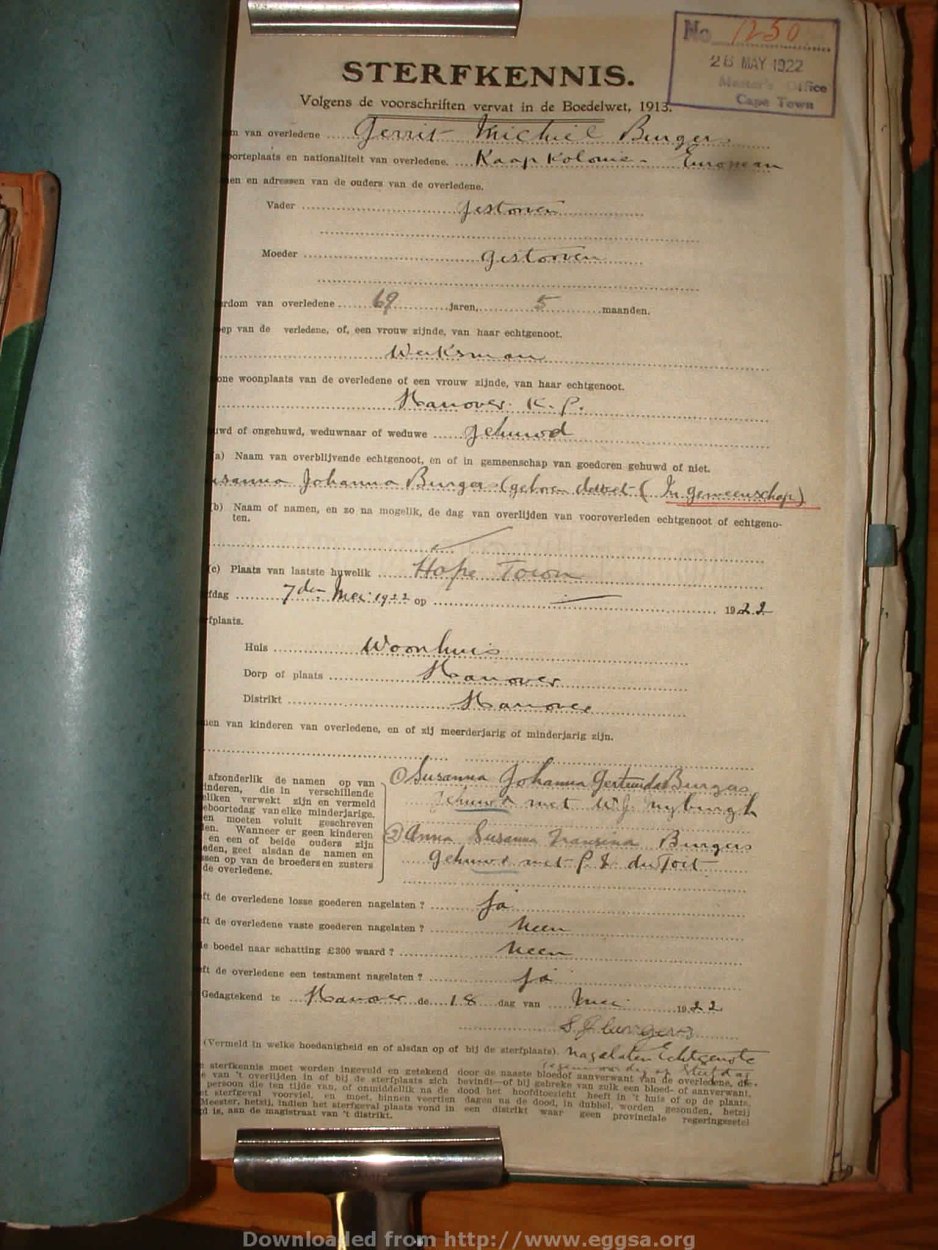 No 1250
26 MAY 1922
Master's Office
Cape Town
STERFKENNIS.
Volgens de voorschriften vervat in de Boedelwet, 1913.
van overledene Gerrit Michiel Burgers
boorteplaats en nationaliteit van overledene. Kaap Kolonie European
en en adressen van de ouders van de overledene.
Vader gestorven
Moeder gestorven
rdom van overledene 69 jaren, 5 maanden.
ep van de verledene, of, een vrouw zijnde, van haar echtgenoot.
Werksman
one woonplaats van de overledene of een vrouw zijnde, van haar echtgenoot.
Hanover K. P.
uwd of ongehuwd, weduwnaar of weduwe gehuwd
a) Naam van overblijvende echtgenoot, en of in gemeenschap van goedoren gehuwd of niet.
usanna Johanna Burgers (geboren (In gemeenschap)
(b) Naam of namen, en zo na mogelik, de dag van overlijden van vooroverleden echtgenoot of echtgeno-
ten.
(c) Plaats van laatste huwelik Hope Town
fdag 7den Mei 1922 op 1922
rfplaats.
Huis Woonhuis
Dorp of plaats Hanover
Distrikt Hanover
men van kinderen van overledene, en of zij meerderjarig of minderjarig zijn.
afzonderlik de namen op van
inderen, die in verschillende
eliken verwekt zijn en vermeld
eboortedag van elke minderjarige.
en moeten voluit geschreven
den. Wanneer er geen kinderen
en een of beide ouders zijn
eden, geef alsdan de namen en
ssen op van de broeders en zusters
de overledene.
① Susanna Johanna Gertruida Burgers
gehuwd met W. J. Nyburgh
② Anna Susanna Francina Burgers
Gehuwd met P. S. du Toit
ft de overledene losse goederen nagelaten ? Ja
ft de overledene vaste goederen nagelaten ? Neen
e boedel naar schatting £300 waard ? Neen
ft de overledene een testament nagelaten ? Ja
Gedagtekend te Hanover de 18 dag van Mei 1922
S. J. Burgers
(Vermeld in welke hoedanigheid en of alsdan op of bij de sterfplaats). Nagelaten Echtgenote
tegenwoordig op Sterfdag
sterfkennis moet worden ingevuld en getekend door de naaste bloedof aanverwant van de overledene, die
van 't overlijden in of bij de sterfplaats zich bevindt—of bij gebreke van zulk een bloed- of aanverwant,
persoon die ten tijde van, of onmiddellik na de dood het hoofdtoezicht heeft in 't huis of op de plaats,
et sterfgeval voorviel, en moet, binnen veertien dagen na de dood, in dubbel, worden gezonden, hetzij
Meester, hetzij, indien het sterfgeval plaats vond in een distrikt waar geen provinciale regeringszetel
d is, aan de magistraat van 't distrikt.
Downloaded from http://www.eggsa.org